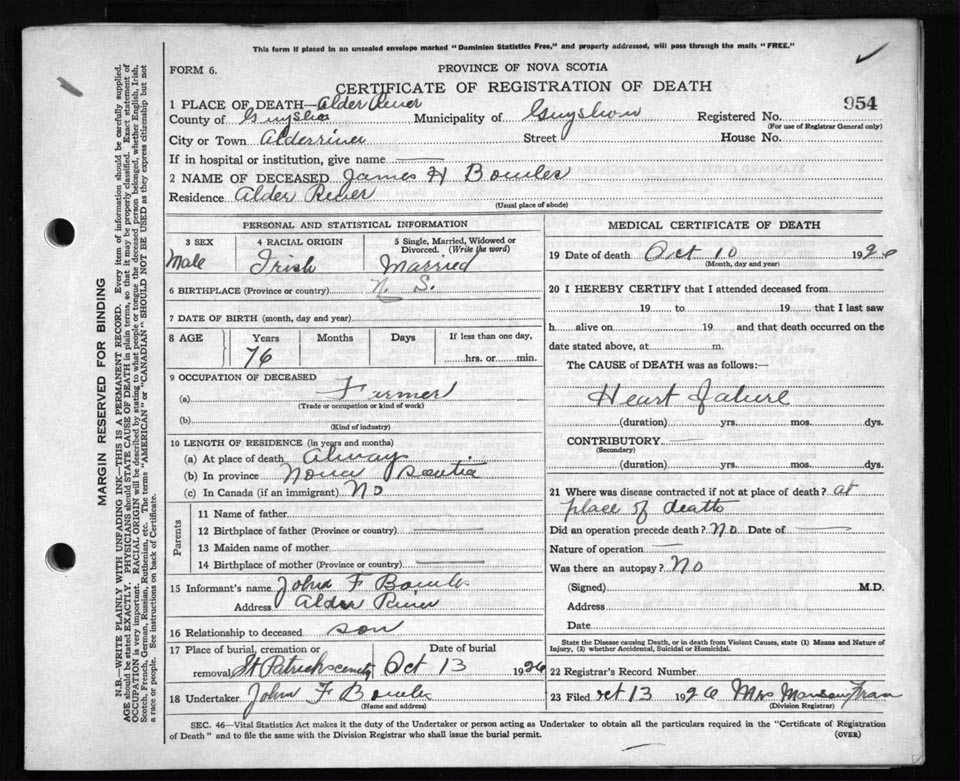 This form if placed in an unsealed envelope marked "Dominion Statistics Free," and properly addressed, will pass through the mails "FREE."
FORM 6.
PROVINCE OF NOVA SCOTIA
CERTIFICATE OF REGISTRATION OF DEATH
954
1 PLACE OF DEATH—Alder River
County of Municipality of Registered No.
(For use of Registrar General only)
City or Town Alderriver Street House No.
If in hospital or institution, give name
2 NAME OF DECEASED James H Bowles
Residence Alder River
(Usual place of abode)
PERSONAL AND STATISTICAL INFORMATION
3 SEX 4 RACIAL ORIGIN 5 Single, Married, Widowed or Divorced. (Write the word)
Male Irish Married
6 BIRTHPLACE (Province or country) N. S.
7 DATE OF BIRTH (month, day and year)
8 AGE Years Months Days If less than one day,
76 hrs. or min.
9 OCCUPATION OF DECEASED
(a) Farmer
(Trade or occupation or kind of work)
(b)
(Kind of industry)
10 LENGTH OF RESIDENCE (in years and months)
(a) At place of death Alway
(b) In province Nova Scotia
(c) In Canada (if an immigrant) No
Parents
11 Name of father
12 Birthplace of father (Province or country)
13 Maiden name of mother
14 Birthplace of mother (Province or country)
15 Informant's name John F Bowls
Address Alder River
16 Relationship to deceased son
17 Place of burial, cremation or Date of burial
removal St Patricks Oct 13 1926
18 Undertaker John F Bowls
(Name and address)
MEDICAL CERTIFICATE OF DEATH
19 Date of death Oct 10 1926
(Month, day and year)
20 I HEREBY CERTIFY that I attended deceased from
19 to 19 that I last saw
h alive on 19 and that death occurred on the
date stated above, at m.
The CAUSE of DEATH was as follows:—
Heart falure
(duration) yrs. mos. dys.
CONTRIBUTORY
(Secondary)
(duration) yrs. mos. dys.
21 Where was disease contracted if not at place of death? at
place of death
Did an operation precede death? No Date of
Nature of operation
Was there an autopsy? No
(Signed) M.D.
Address
Date
State the Disease causing Death, or in death from Violent Causes, state (1) Means and Nature of
Injury, (2) whether Accidental, Suicidal or Homicidal.
22 Registrar's Record Number
23 Filed oct 13 1926 Mrs
(Division Registrar)
SEC. 46—Vital Statistics Act makes it the duty of the Undertaker or person acting as Undertaker to obtain all the particulars required in the "Certificate of Registration
of Death" and to file the same with the Division Registrar who shall issue the burial permit.
(OVER)
MARGIN RESERVED FOR BINDING
N.B.—WRITE PLAINLY WITH UNFADING INK—THIS IS A PERMANENT RECORD. Every item of information should be carefully supplied.
AGE should be stated EXACTLY. PHYSICIANS should STATE CAUSE OF DEATH in plain terms, so that it may be properly classified. Exact statement of
OCCUPATION is very important. RACIAL ORIGIN will be described by stating to what people or tongue the deceased person belonged, whether English, Irish,
Scotch, French, German, Russian, Ruthenian, etc. The terms "AMERICAN" or "CANADIAN" SHOULD NOT BE USED as they express citizenship but not
a race or people. See instructions on back of Certificate.